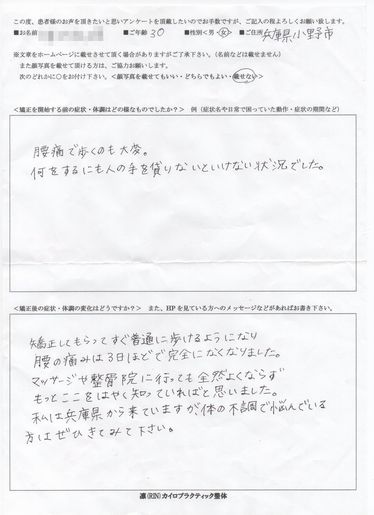 この度、患者様のお声を頂きたいと思いアンケートを頂戴したいのでお手数ですが、ご記入の程よろしくお願い致します。
■お名前 ■ご年齢 30 ■性別＜男・女＞ ■ご住所 兵庫県小野市
※文章をホームページに載せさせて頂く場合がありますがご了承下さい。（名前などは載せません）
また顔写真を載せて頂ける方は、ご協力お願いします。
次のどれかに○をお付け下さい。＜顔写真を載せてもいい・どちらでもよい・載せない＞
＜矯正を開始する前の症状・体調はどの様なものでしたか？＞ 例（症状名や日常で困っていた動作・症状の期間など）
腰痛で歩くのも大変。
何をするにも人の手を貸りないといけない状況でした。
＜矯正後の症状・体調の変化はどうですか？＞ また、HPを見ている方へのメッセージなどがあればお書き下さい。
矯正してもらってすぐ普通に歩けるようになり
腰の痛みは3日ほどで完全になくなりました。
マッサージや整骨院に行っても全然よくならず
もっとここをはやく知っていればと思いました。
私は兵庫県から来ていますが体の不調で悩んでいる
方はぜひきてみて下さい。
凛(RIN)カイロプラクティック整体